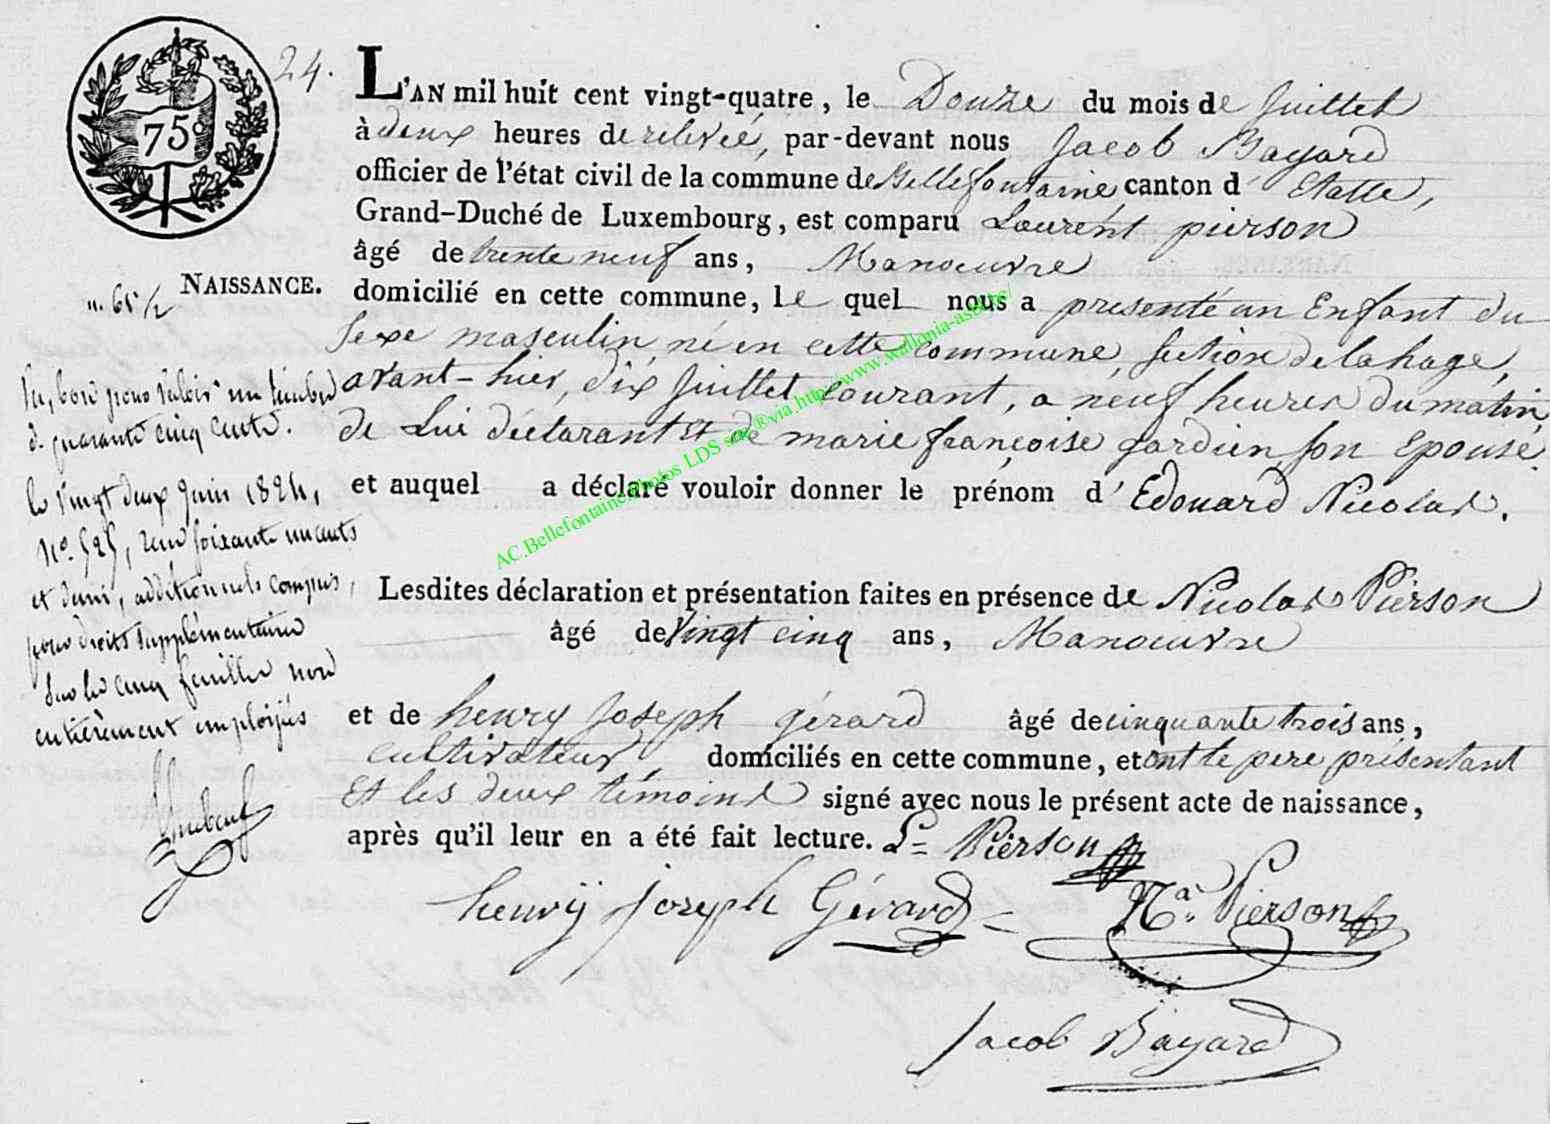 75c
24.
L'AN mil huit cent vingt-quatre, le Douze du mois de Juillet
à deux heures de relevée, par-devant nous Jacob Bayard
officier de l'état civil de la commune de Bellefontaine, canton d' Etalle,
Grand-Duché de Luxembourg, est comparu Laurent pierson
âgé de trente neuf ans, Manoeuvre
domicilié en cette commune, le quel nous a presenté un Enfant du
Sexe masculin, né en cette commune, section de lahage,
avant-hier, dix Juillet courant, a neuf heures du matin,
de Lui déclarant et de marie françoise gardien son Epouse.
et auquel a déclaré vouloir donner le prénom d' Edouard Nicolas.
Lesdites déclaration et présentation faites en présence de Nicolas Pierson
âgé de vingt cinq ans, Manoeuvre
et de henry Joseph gérard âgé de cinquante trois ans,
cultivateur, domiciliés en cette commune, et ont le pere présentant
et les deux témoins signé avec nous le présent acte de naissance,
après qu'il leur en a été fait lecture. L= Pierson
henrÿ joseph Gérard = Na. Pierson
Jacob Bayard
NAISSANCE.
n. 65 1/2
Vu, bon pour valoir un timbre
de quarante cinq cents.
le vingt deux Juin 1824,
No. 525, reçu soixante un cents
et demi, additionnels compris,
pour droits supplémentaires
sur les cinq feuilles non
entièrement employés
AC.Bellefontaine photos LDS sur ®via http://www.wallonia-asbl.be/